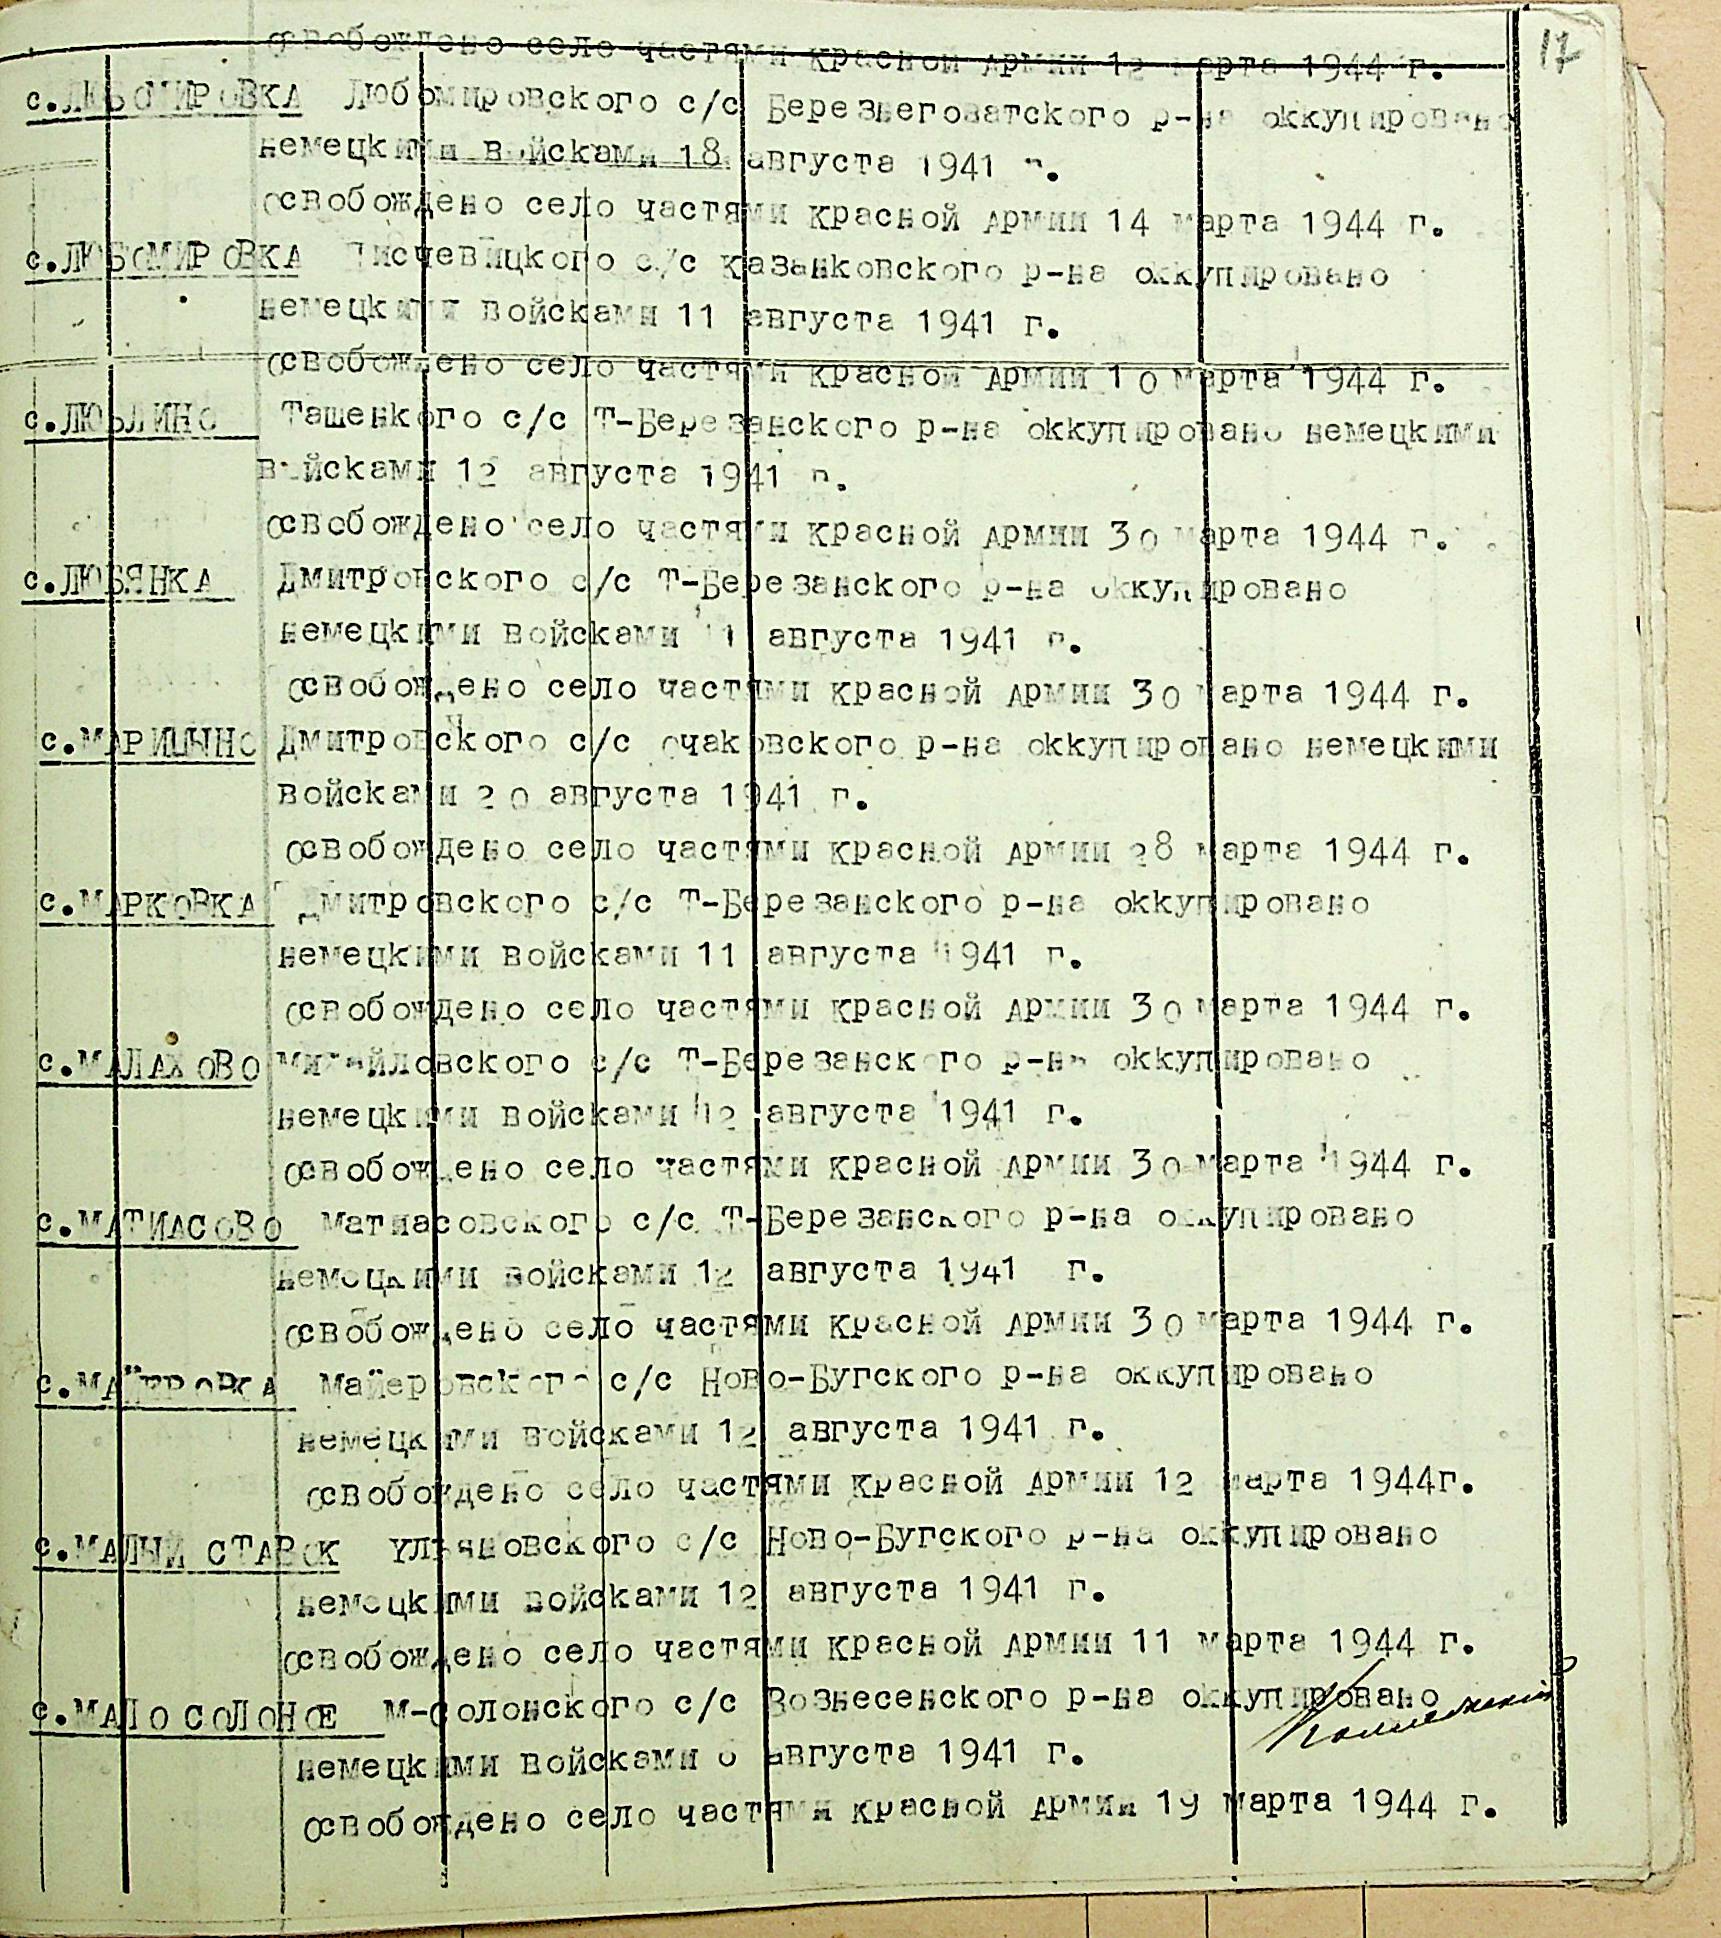 17
освобождено село частями красной армии 12 марта 1944 г.
с.ЛЮБОМИРОВКА Любомировского с/с Березнеговатского р-на оккупировано
немецкими войсками 18 августа 1941 г.
освобождено село частями красной армии 14 марта 1944 г.
с.ЛЮБОМИРОВКА с/с казанковского р-на оккупировано
немецкими войсками 11 августа 1941 г.
освобождено село частями красной армии 10 марта 1944 г.
с.ЛЮБЛИНО Ташенкого с/с Т-Березанского р-на оккупировано немецкими
войсками 12 августа 1941 г.
освобождено село частями красной армии 30 марта 1944 г.
с.ЛЮБЯНКА Дмитровского с/с Т-Березанского р-на оккупировано
немецкими войсками 11 августа 1941 г.
освобождено село частями красной армии 30 марта 1944 г.
с.МАРИЦЫНО Дмитровского с/с очаковского р-на оккупировано немецкими
войсками 20 августа 1941 г.
освобождено село частями красной армии 28 марта 1944 г.
с.МАРКОВКА Дмитровского с/с Т-Березанского р-на оккупировано
немецкими войсками 11 августа 1941 г.
освобождено село частями красной армии 30 марта 1944 г.
с.МАЛАХОВО михайловского с/с Т-Березанского р-на оккупировано
немецкими войсками 12 августа 1941 г.
освобождено село частями красной армии 30 марта 1944 г.
с.МАТИАСОВО матиасовского с/с Т-Березанского р-на оккупировано
немецкими войсками 12 августа 1941 г.
освобождено село частями красной армии 30 марта 1944 г.
с.МАЙЕРОВКА майеровского с/с Ново-Бугского р-на оккупировано
немецкими войсками 12 августа 1941 г.
освобождено село частями красной армии 12 марта 1944г.
с.МАЛЫЙ СТАВОК Ульяновского с/с Ново-Бугского р-на оккупировано
немецкими войсками 12 августа 1941 г.
освобождено село частями красной армии 11 марта 1944 г.
с.МАЛОСОЛОНОЕ м-солонского с/с Вознесенского р-на оккупировано
немецкими войсками августа 1941 г.
освобождено село частями красной армии 19 марта 1944 г.